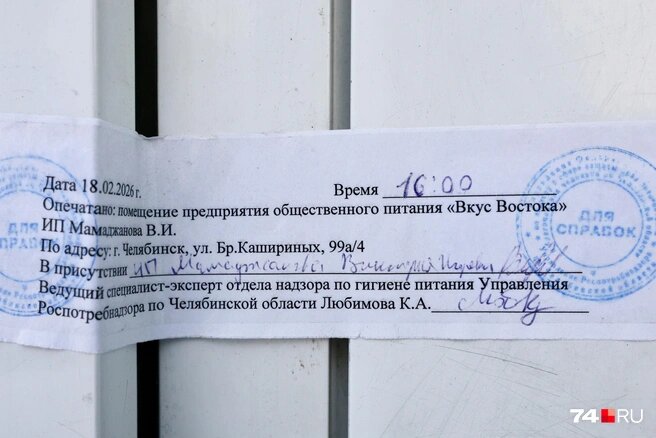 Дата 18.02.2026 г. Время 16:00
Опечатано: помещение предприятия общественного питания «Вкус Востока»
ИП Мамаджанова В.И.
По адресу: г. Челябинск, ул. Бр.Кашириных, 99а/4
В присутствии ИП Мамаджанова
Ведущий специалист-эксперт отдела надзора по гигиене питания Управления
Роспотребнадзора по Челябинской области Любимова К.А.
ДЛЯ
СПРАВОК
ДЛЯ
СПРАВОК
74.RU